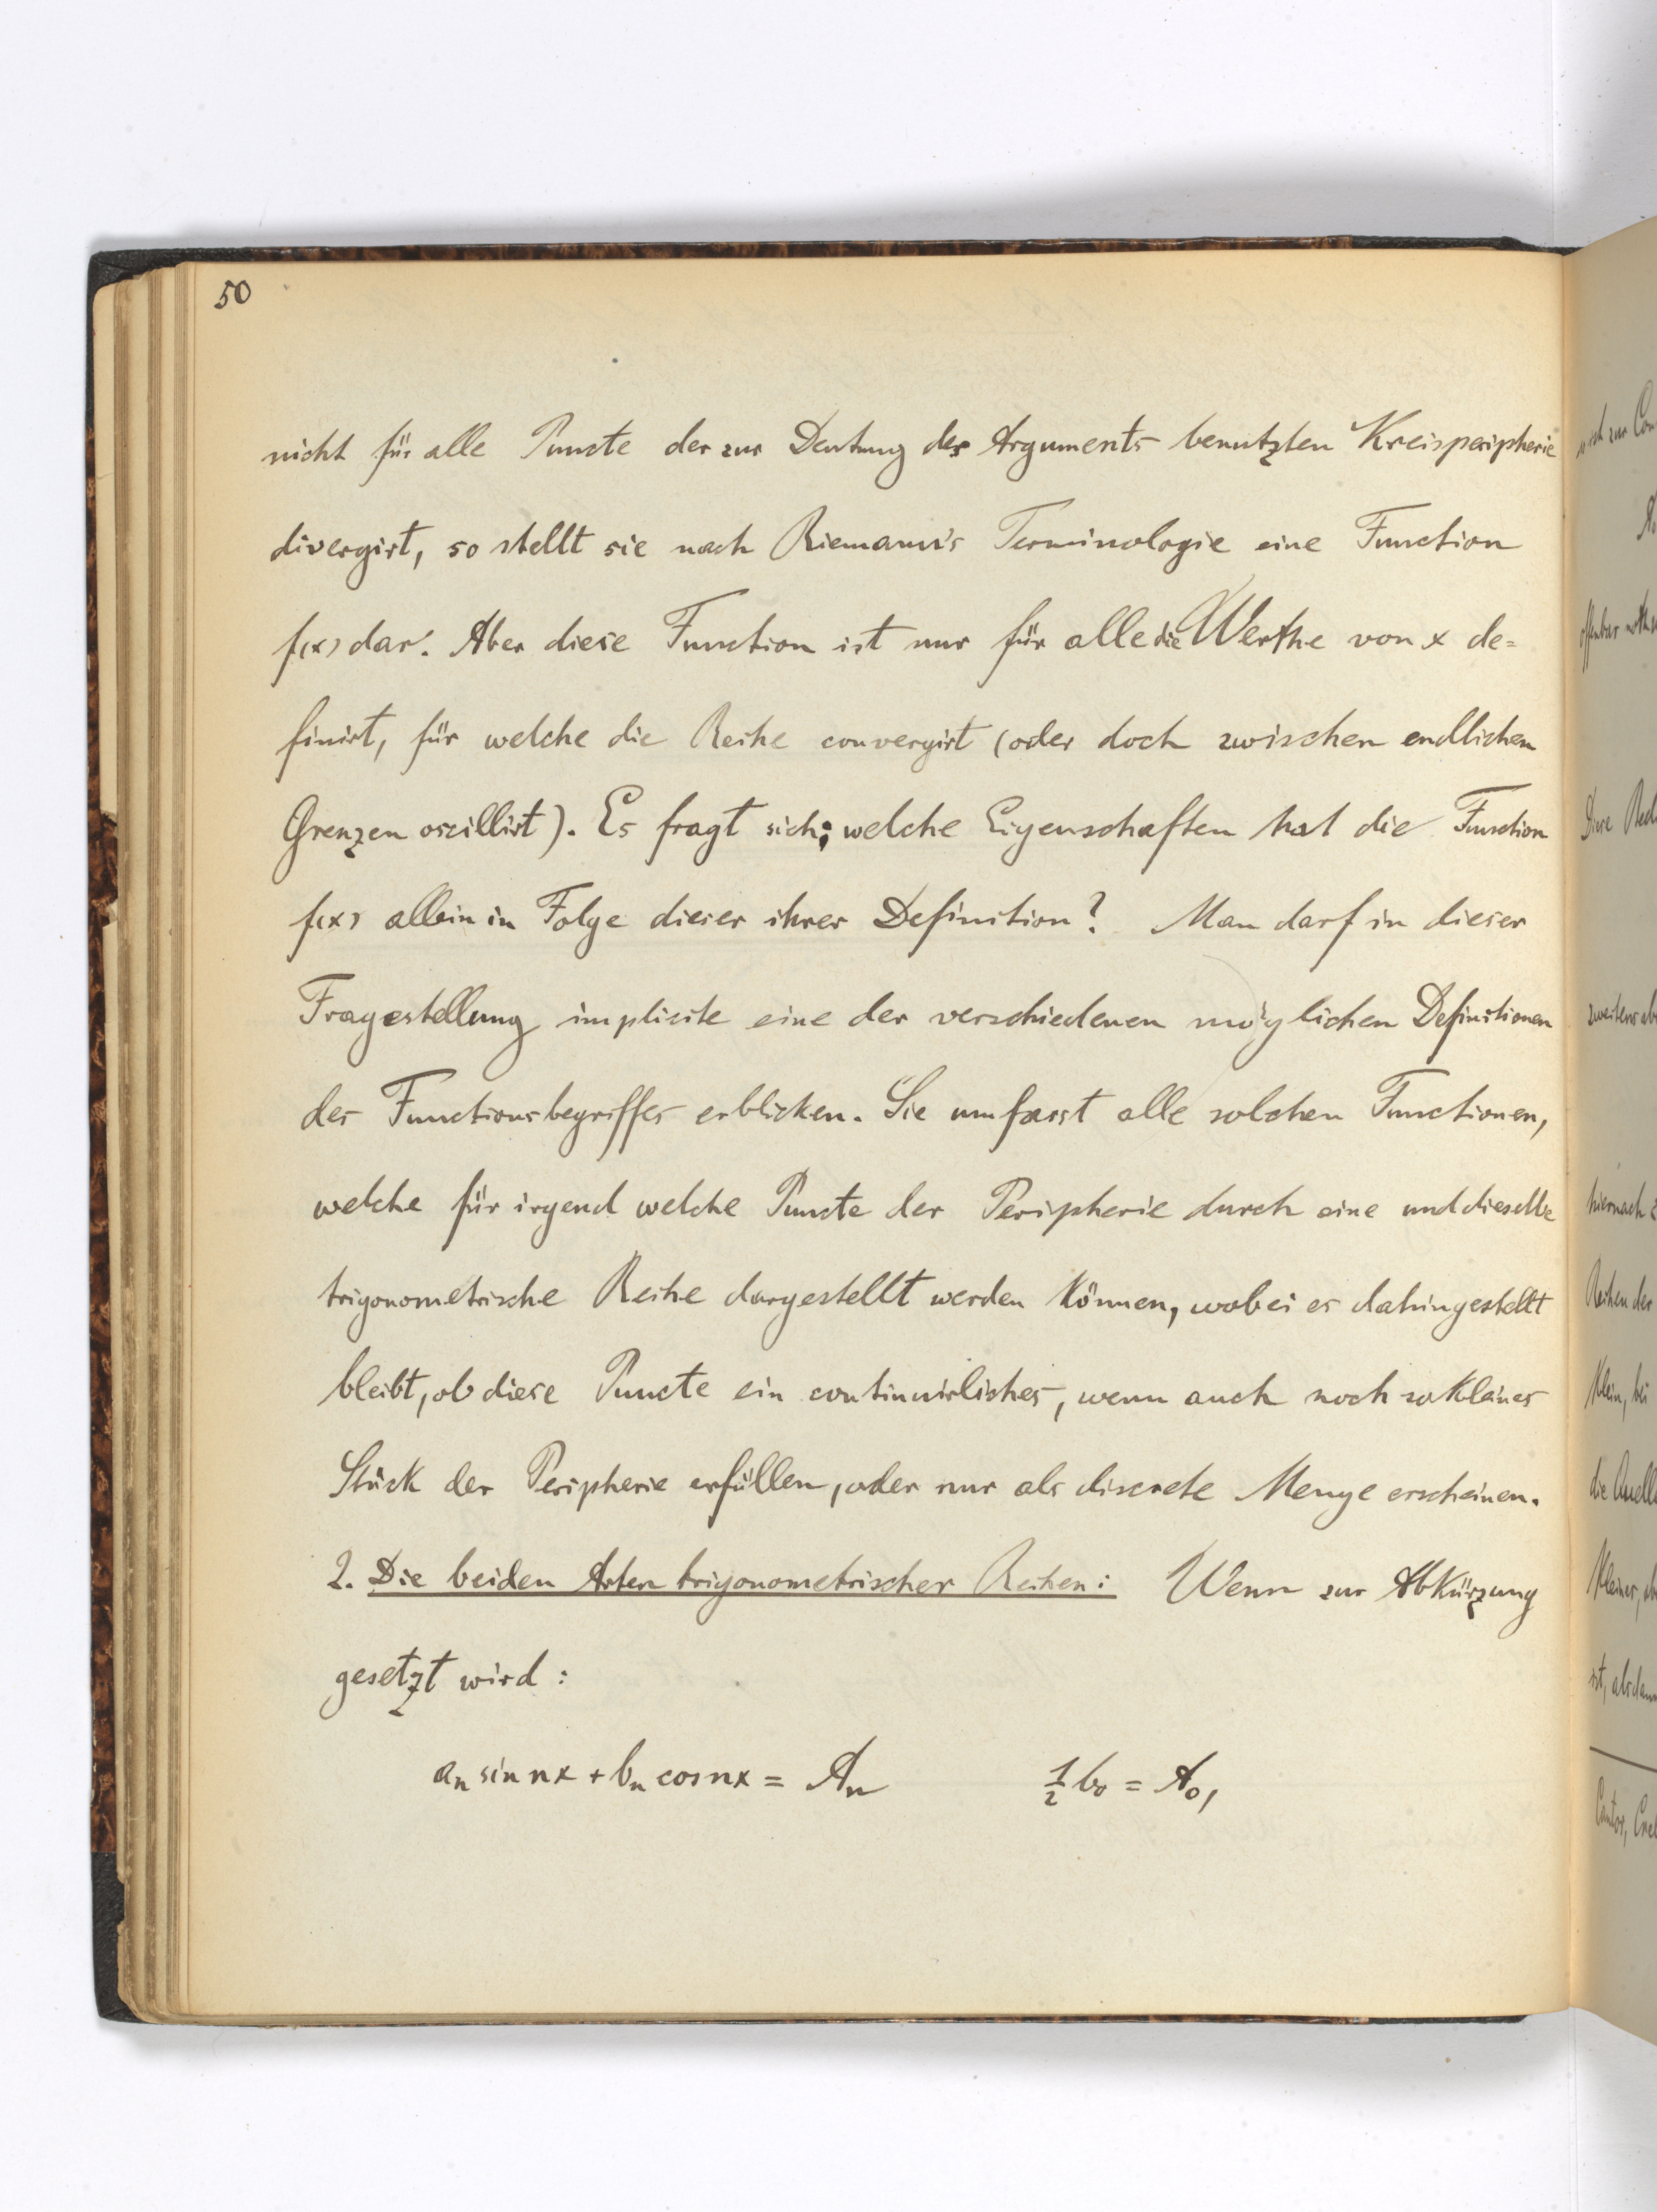 50
nicht für alle Puncte der zur Deutung des Arguments benutzten Kreisperipherie
divergirt, so stellt sie nach Riemann's Terminologie eine Function
f(x) dar. Aber diese Function ist nur für alle die Werthe von x de=
finirt, für welche die Reihe convergirt (oder doch zwischen endlichen
Grenzen oscillirt). Es fragt sich; welche Eigenschaften hat die Function
f(x) allein in Folge dieser ihrer Definition? Man darf in dieser
Fragestellung implicite eine der verschiedenen möglichen Definitionen
des Functionsbegriffes erblicken. Sie umfasst alle solchen Functionen,
welche für irgend welche Puncte der Peripherie durch eine und dieselbe
trigonometrische Reihe dargestellt werden können, wobei es dahingestellt
bleibt, ob diese Puncte ein continuirliches, wenn auch noch so kleines
Stück der Peripherie erfüllen, oder nur als discrete Menge erscheinen.
2. Die beiden Arten trigonometrischer Reihen: Wenn zur Abkürzung
gesetzt wird:
aₙ sin nx + bₙ cos nx = Aₙ ½ b₀ = A₀,
zweitens
hiernach
Reihen der
Klein, bei
Cantor,